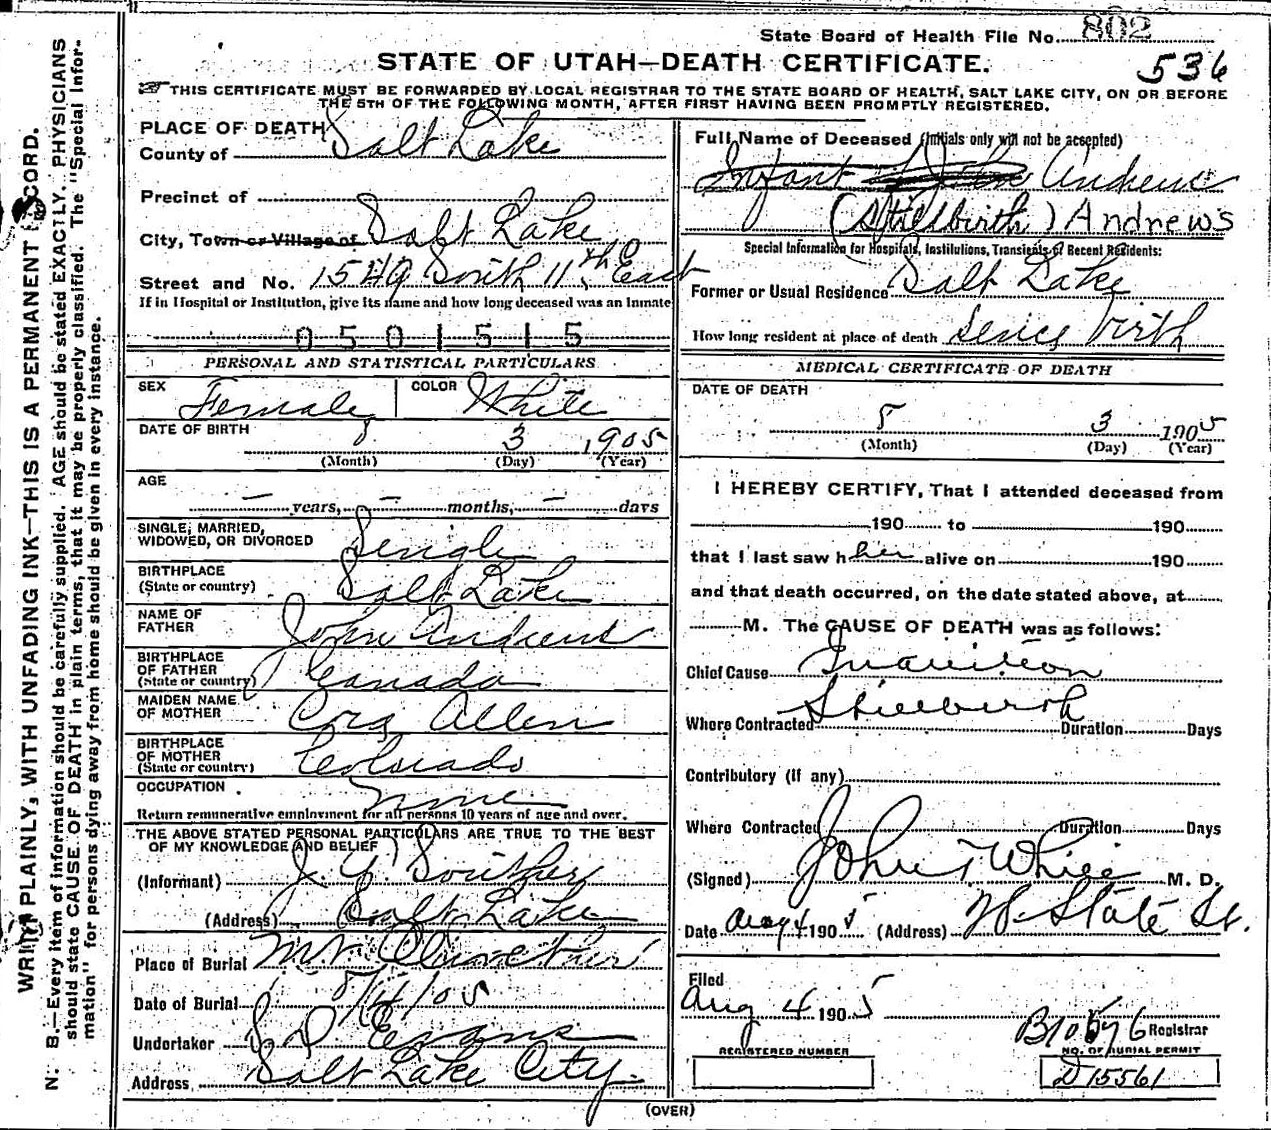 State Board of Health File No. 802
536
STATE OF UTAH—DEATH CERTIFICATE.
THIS CERTIFICATE MUST BE FORWARDED BY LOCAL REGISTRAR TO THE STATE BOARD OF HEALTH, SALT LAKE CITY, ON OR BEFORE
THE 5TH OF THE FOLLOWING MONTH, AFTER FIRST HAVING BEEN PROMPTLY REGISTERED.
WRITE PLAINLY, WITH UNFADING INK—THIS IS A PERMANENT RECORD.
N. B.—Every item of information should be carefully supplied. AGE should be stated EXACTLY. PHYSICIANS
should state CAUSE OF DEATH in plain terms, that it may be properly classified. The "Special Infor-
mation" for persons dying away from home should be given in every instance.
PLACE OF DEATH
County of Salt Lake
Precinct of
City, Town or Village of Salt Lake
Street and No. 1549 South 11th East
If in Hospital or Institution, give its name and how long deceased was an Inmate
0501515
PERSONAL AND STATISTICAL PARTICULARS
SEX Female COLOR White
DATE OF BIRTH 8 3 1905
(Month) (Day) (Year)
AGE
— years, — months, — days
SINGLE, MARRIED,
WIDOWED, OR DIVORCED Single
BIRTHPLACE
(State or country) Salt Lake
NAME OF
FATHER John Andrews
BIRTHPLACE
OF FATHER
(State or country) Canada
MAIDEN NAME
OF MOTHER Cora Allen
BIRTHPLACE
OF MOTHER
(State or country) Colorado
OCCUPATION None
Return remunerative employment for all persons 10 years of age and over.
THE ABOVE STATED PERSONAL PARTICULARS ARE TRUE TO THE BEST
OF MY KNOWLEDGE AND BELIEF
(Informant) J.
(Address) Salt Lake
Place of Burial Mt Olivet
Date of Burial 8/4/05
Undertaker S D Evans
Address Salt Lake City
Full Name of Deceased (Initials only will not be accepted)
Infant John Andrews
(Stillbirth) Andrews
Special Information for Hospitals, Institutions, Transients or Recent Residents:
Former or Usual Residence Salt Lake
How long resident at place of death Since birth
MEDICAL CERTIFICATE OF DEATH
DATE OF DEATH
8 3 1905
(Month) (Day) (Year)
I HEREBY CERTIFY, That I attended deceased from
190 to 190
that I last saw her alive on 190
and that death occurred, on the date stated above, at
M. The CAUSE OF DEATH was as follows:
Chief Cause Inanition
Stillbirth
Where Contracted Duration Days
Contributory (If any)
Where Contracted Duration Days
(Signed) John T White M. D.
Date Aug 4 1905 (Address) State St.
Filed
Aug 4 1905
Registrar
REGISTERED NUMBER
NO. OF BURIAL PERMIT
D15561
(OVER)